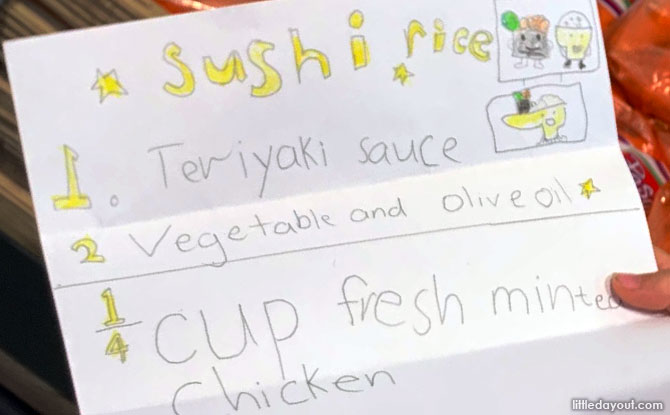 sushi rice
1. Teriyaki sauce
2 Vegetable and olive oil
1/4 cup fresh minted
chicken
littledayout.com